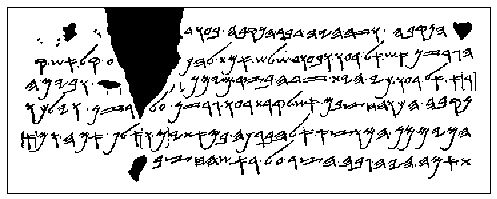 𐤄𐤍𐤒𐤁𐤄 · 𐤅𐤆𐤄 · 𐤄𐤉𐤄 · 𐤃𐤁𐤓 · 𐤄𐤍𐤒𐤁𐤄 · 𐤁𐤏𐤅𐤃
𐤄𐤂𐤓𐤆𐤍 · 𐤀𐤔 · 𐤀𐤋 · 𐤓𐤏𐤅 · 𐤅𐤁𐤏𐤅𐤃 · 𐤔𐤋𐤔 · 𐤀𐤌𐤕 · 𐤏 · 𐤒𐤋 · 𐤀𐤔 · 𐤒
𐤓𐤀 · 𐤀𐤋 · 𐤓𐤏𐤅 · 𐤊𐤉 · 𐤄𐤉𐤕 · 𐤆𐤃𐤄 · 𐤁𐤑𐤓 · 𐤌𐤉𐤌𐤍 · 𐤅𐤁𐤉𐤌 · 𐤄
𐤍𐤒𐤁𐤄 · 𐤄𐤊𐤅 · 𐤄𐤇𐤑𐤁𐤌 · 𐤀𐤔 · 𐤋𐤒𐤓𐤕 · 𐤓𐤏𐤅 · 𐤂𐤓𐤆𐤍 · 𐤏𐤋 · 𐤂𐤓𐤆𐤍 · 𐤅𐤉𐤋𐤊𐤅
𐤄𐤌𐤉𐤌 · 𐤌𐤍 · 𐤄𐤌𐤅𐤑𐤀 · 𐤀𐤋 · 𐤄𐤁𐤓𐤊𐤄 · 𐤁𐤌𐤀𐤕𐤉𐤌 · 𐤅𐤀𐤋𐤐 · 𐤀𐤌𐤄 · 𐤅𐤌𐤀
𐤕 · 𐤀𐤌𐤄 · 𐤄𐤉𐤄 · 𐤂𐤁𐤄 · 𐤄𐤑𐤓 · 𐤏𐤋 · 𐤓𐤀𐤔 · 𐤄𐤇𐤑𐤁𐤌